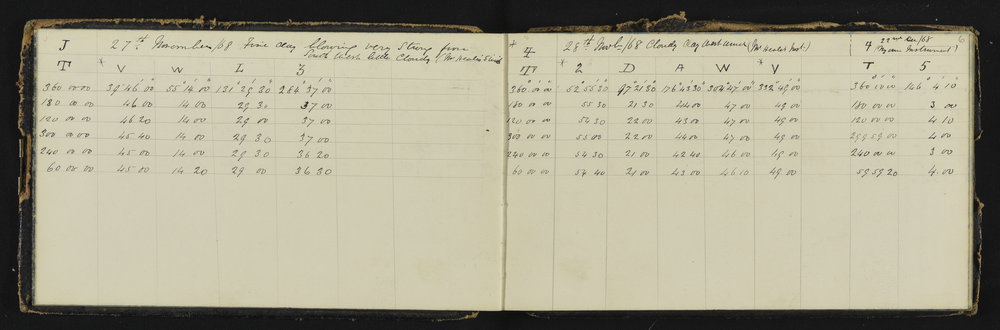 J 27th November/68 Fine day blowing very strong from
South West little Cloudy (Mr Heales Inst)
T * V V W L 3
360 00 00 39 46 00 55 14 00 131 29 30 264 37 00
180 00 00 46 00 14 00 29 30 37 00
120 00 00 46 20 14 00 29 00 37 00
300 00 00 45 40 14 00 29 30 37 00
240 00 00 45 00 14 00 29 30 36 20
60 00 00 45 00 14 20 29 00 36 30
4 28th Novb/68 Cloudy day (Mr Heales Inst)
T * 2 D A W * V
360 00 00 52 55 30 97 21 30 176 43 30 304 47 00 332 49 00
180 00 00 55 30 21 30 44 00 47 00 49 00
120 00 00 54 30 22 00 43 00 47 00 49 00
300 00 00 55 00 22 00 44 00 47 00 49 00
240 00 00 54 30 21 00 42 40 46 00 49 00
60 00 00 54 40 21 00 43 00 46 10 49 00
6
4 22nd Dec/68
Instrument)
T 5
360 10 00 146 4 10
180 00 00 3 00
120 00 00 4 10
299 59 00 4 00
240 00 00 3 00
59 59 20 4 00